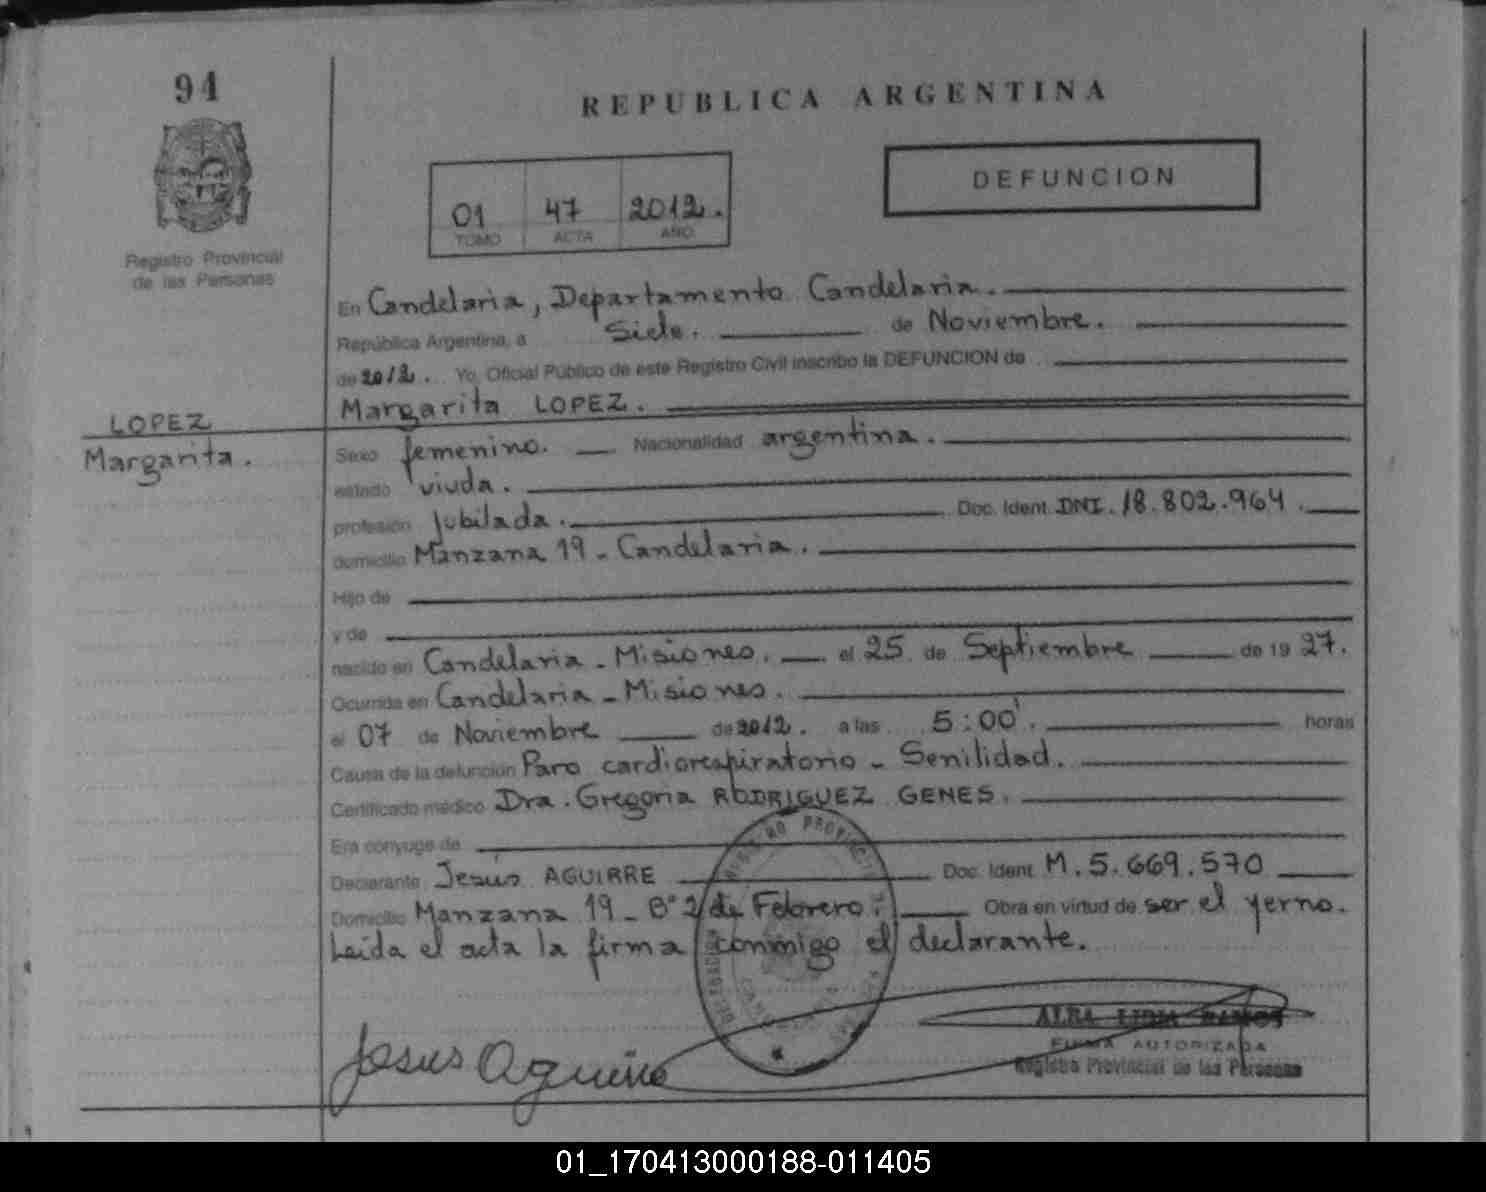 94
REPUBLICA ARGENTINA
DEFUNCION
01 47 2012.
TOMO ACTA AÑO
Registro Provincial
de las Personas
En Candelaria, Departamento Candelaria.
República Argentina, a Siete. de Noviembre.
de 2012. Yo, Oficial Público de este Registro Civil inscribo la DEFUNCION de
Margarita LOPEZ.
LOPEZ
Margarita.
Sexo femenino. Nacionalidad argentina.
estado viuda.
profesión Jubilada. Doc. Ident. DNI. 18.802.964.
domicilio Manzana 19 - Candelaria.
Hijo de
y de
nacido en Candelaria - Misiones. el 25 de Septiembre de 19 27.
Ocurrida en Candelaria - Misiones.
el 07 de Noviembre de 2012. a las 5:00'. horas
Causa de la defunción Paro cardiorespiratorio - Senilidad.
Certificado médico Dra. Gregoria RODRIGUEZ GENES.
Era cónyuge de
Declarante Jesús AGUIRRE Doc. Ident. M. 5.669.570
Domicilio Manzana 19 - B° 2 de Febrero. Obra en virtud de ser el yerno.
Leída el acta la firma conmigo el declarante.
REGISTRO PROVINCIAL
DELEGACION
Jesus Aguirre
ALBA LIDIA RAMOS
FIRMA AUTORIZADA
Registro Provincial de las Personas
01_170413000188-011405